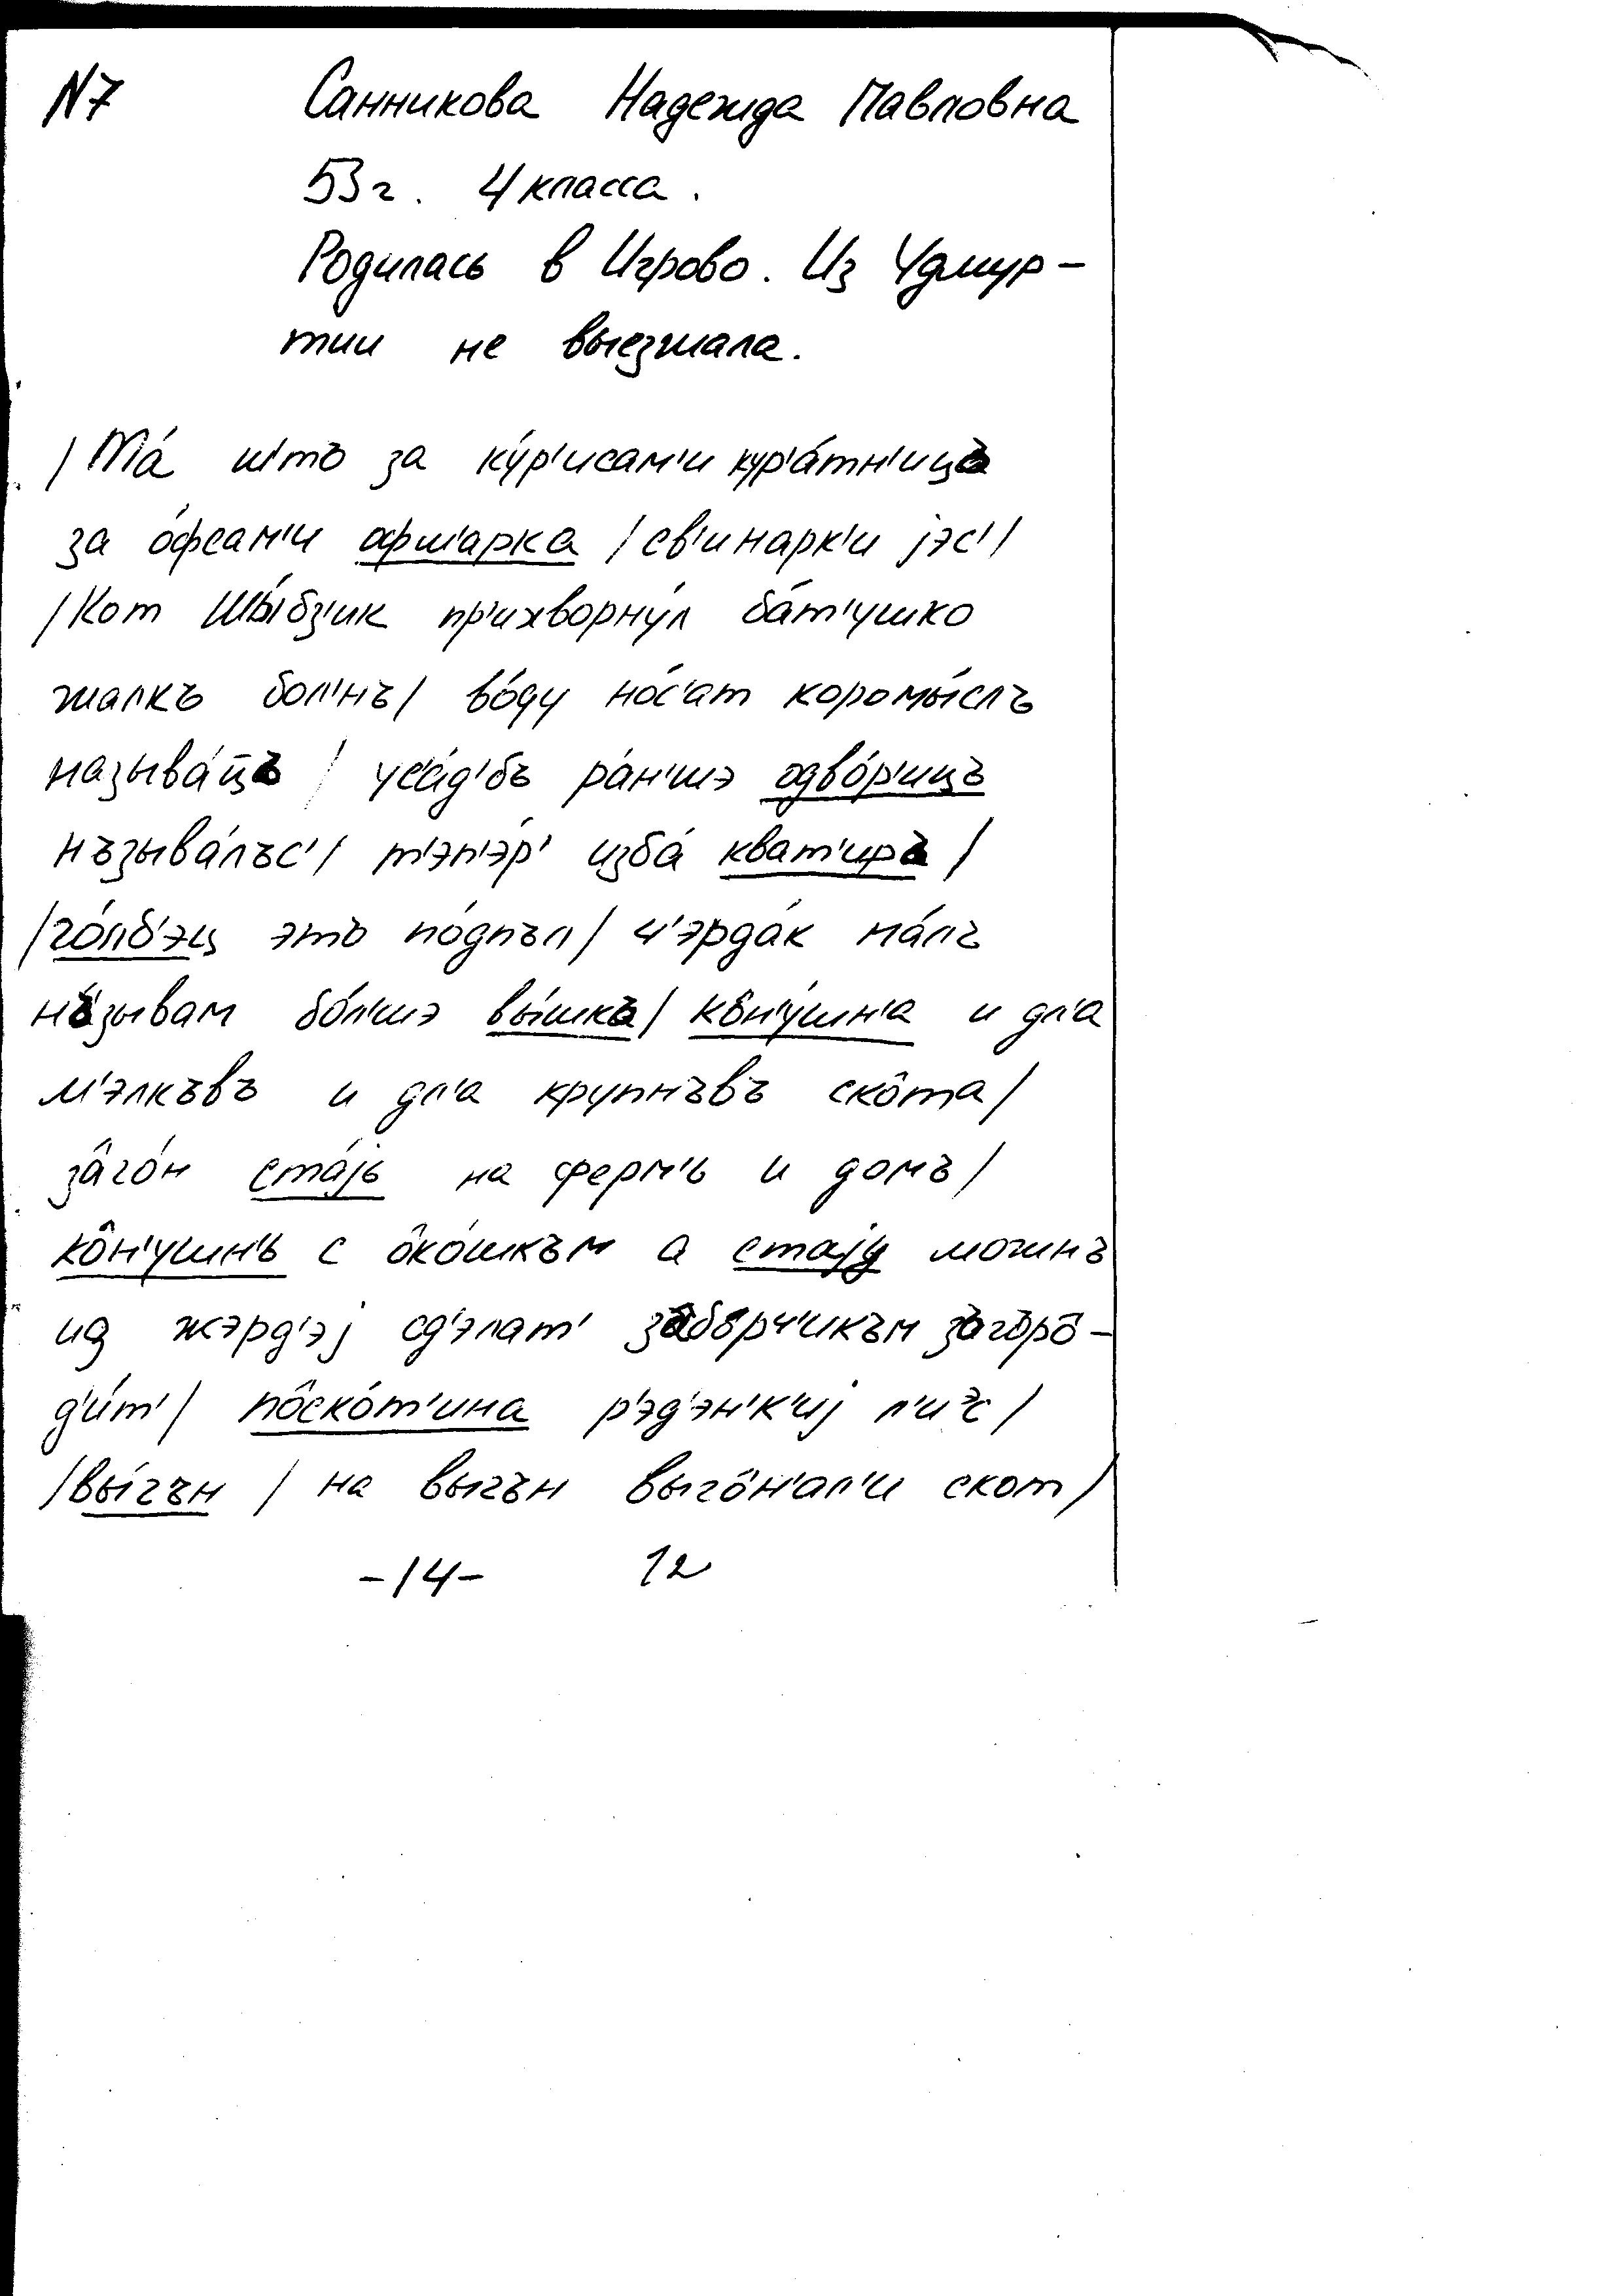 N7 Санникова Надежда Павловна
53 г. 4 класса.
Родилась в Игрово. Из Удмур-
тии не выезжала.
/Та́ штъ за ку́р'исам'и кур'а́тн'ицъ
за о́фсам'и афш'арка /св'инарк'и jэс'/
/Кот Шы́бз'ик пр'ихворну́л ба́т'ушко
жалкъ бол'нъ/ во́ду но́с'ат коромы́слъ
называ́цъ / ус'а́д'бъ ра́н'шэ одво́р'ицъ
нъзыва́лъс'/ т'эп'э́р' изба́ кват'иръ /
/го́лб'эц этъ по́дпъл/ ч'эрда́к ма́лъ
нъзывам бо́л'шэ вы́шкъ/ ко̂н'у́шн'а и дл'а
м'элкъвъ и дл'а крупнъвъ ско̂та/
за̂го́н ста́jь на ферм'ь и домъ/
ко̂н'ушн'ь с о̂ко́шкъм а стаjу можнъ
из жэрд'эj сд'элат' за̂борч'икъм загоро̂-
д'и́т'/ по̂ско́т'ина р'эд'эн'к'иj л'иᵊс/
/вы́гън / на выгън выго̂н'ал'и скот/
-14- 12